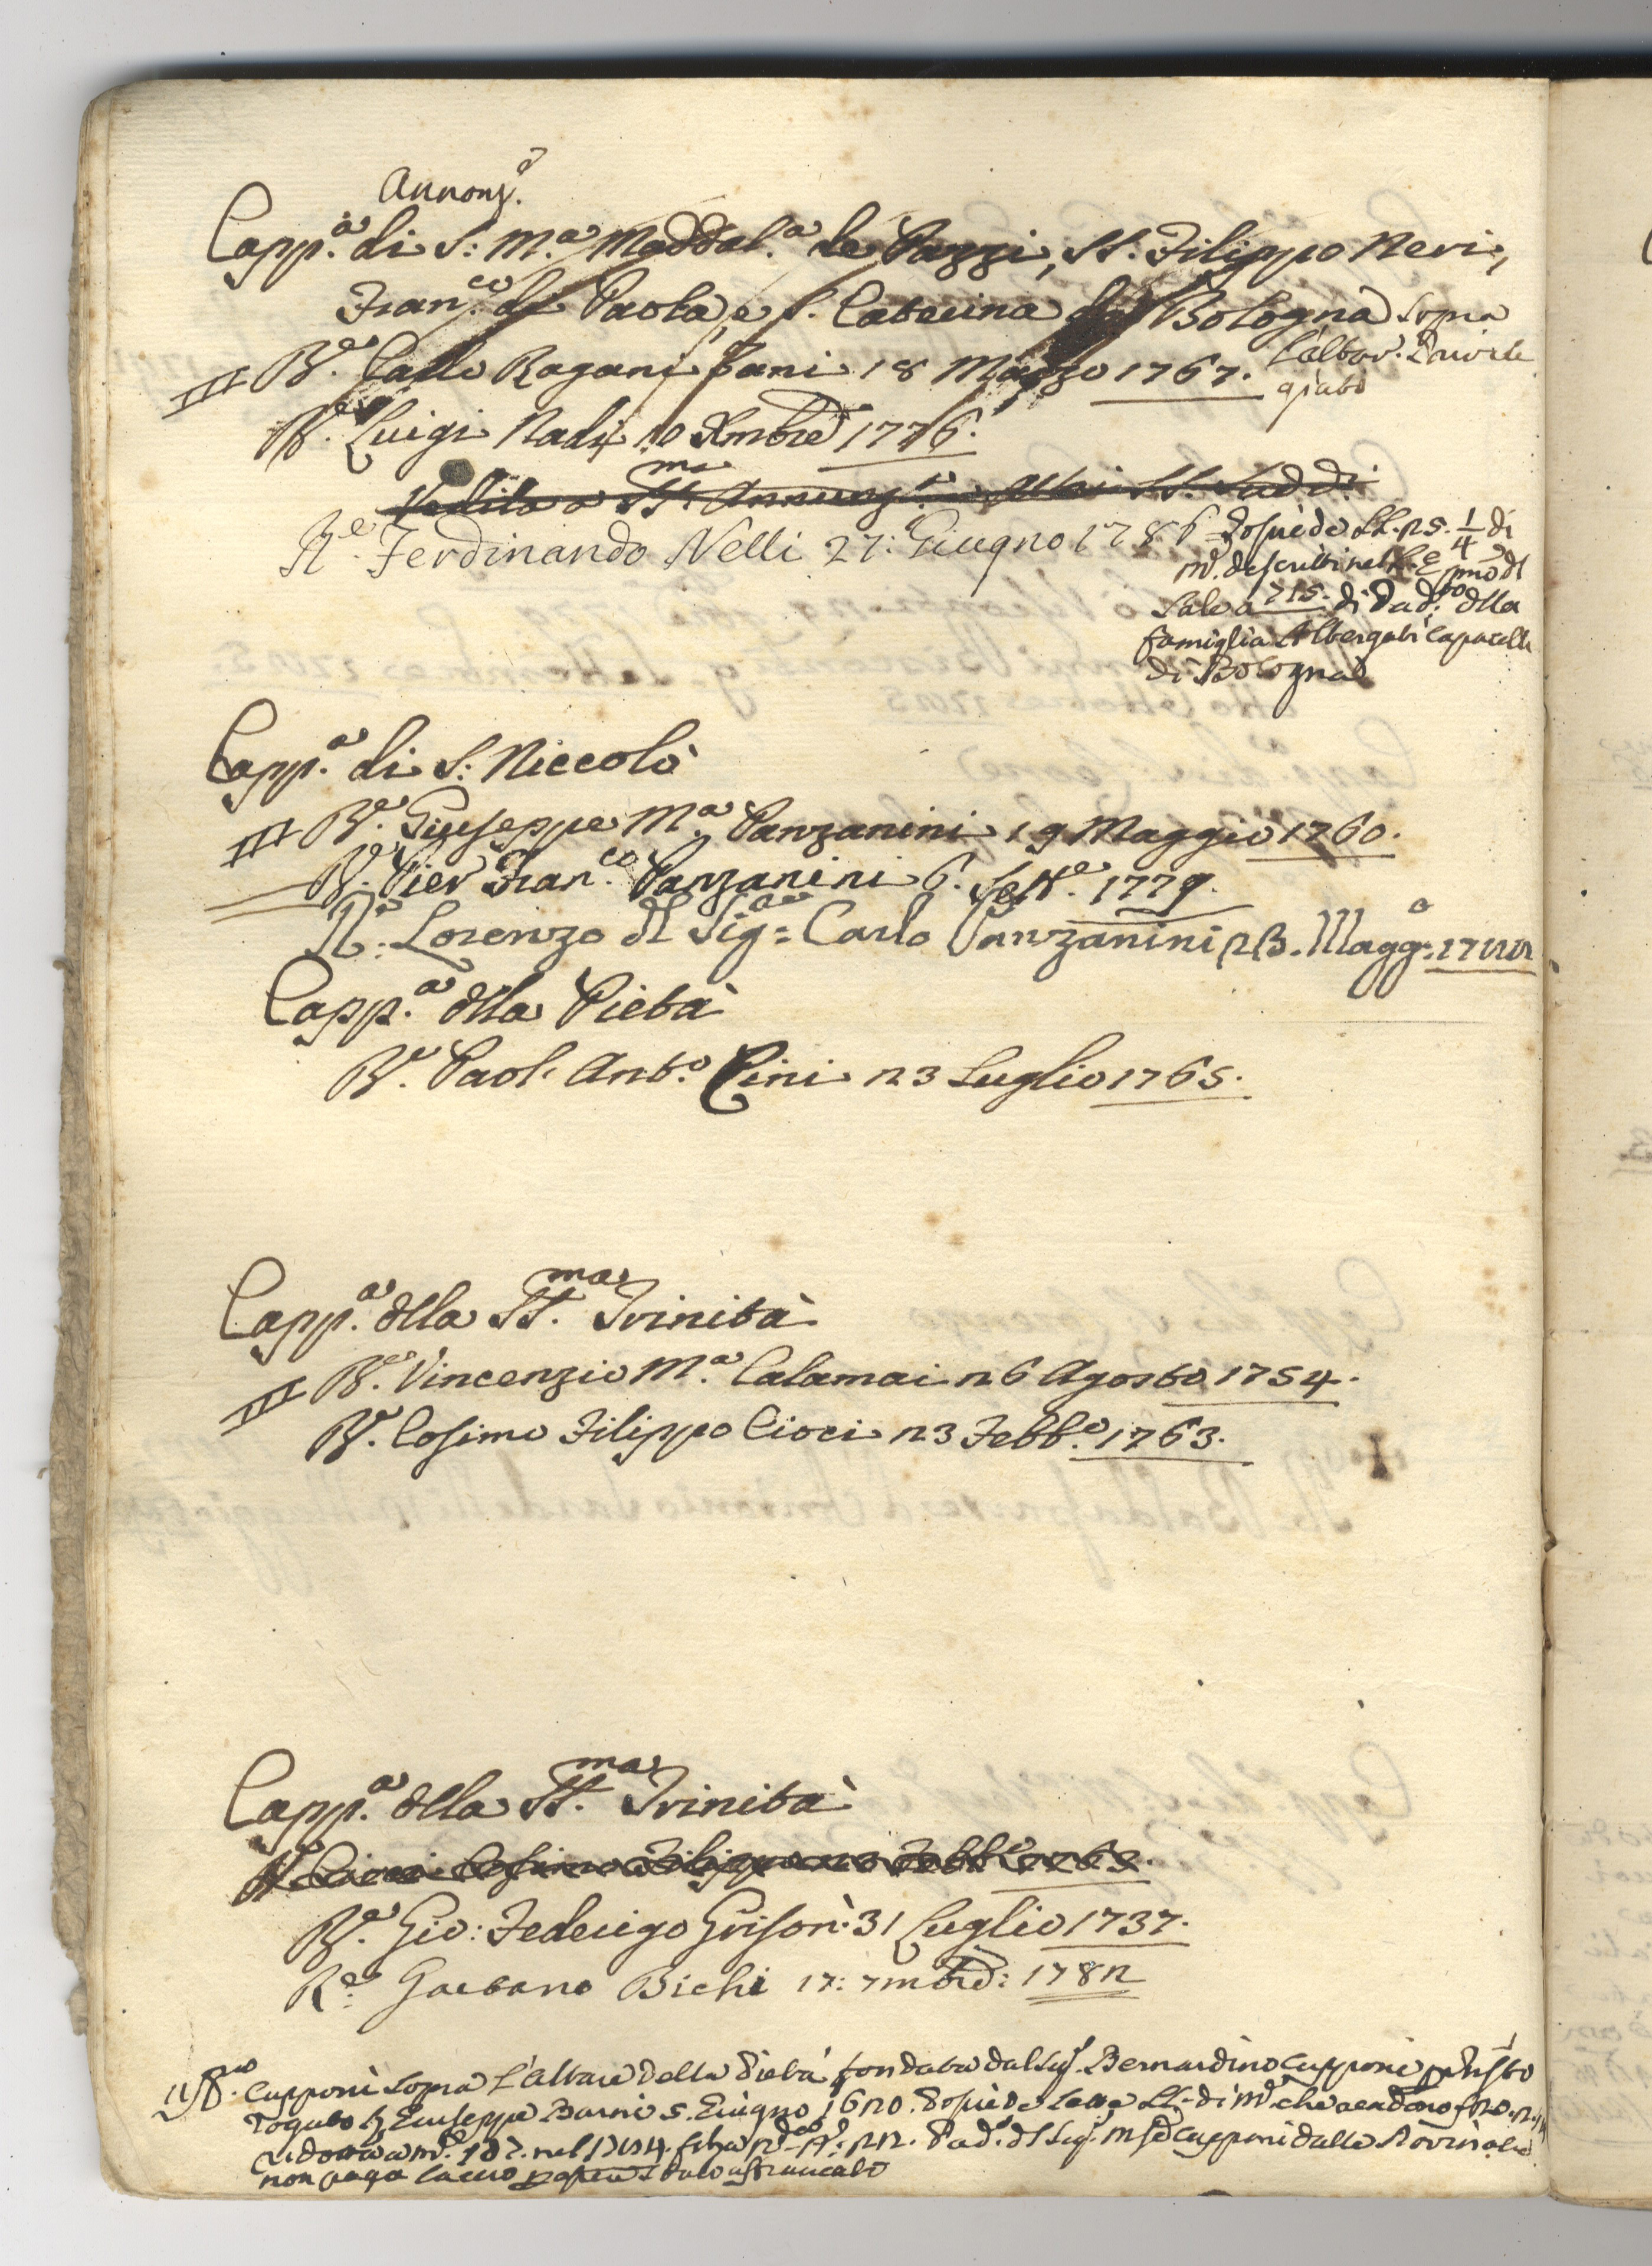 Annonz.ª
Capp.ª di S: M.ª Maddal.ª de Pazzi, SS. Filippo Neri,
Fran.co di Paola, e S. Caterina da Bologna sopra
R.e Carlo Ragani Pani 18 Marzo 1767. l'altar. Privile
giato
R.e Luigi Nadi 10 Xmbre 1776.
SS.ma Annunz.
R.e Ferdinando Nelli 27: Giugno 1786 Possiede LL. 25. 1/4 di
m.e descritti nel
Sale a 715. di Pad.to della
famiglia Albergati Capacelli
di Bologna
Capp.ª di S: Niccolò
R.e Giuseppe M.ª Panzanini 19 Maggio 1760.
R.e Pier Fran.co Panzanini 6. Sett.e 1779.
R.e Lorenzo dl Sig.re Carlo Panzanini 23. Magg.o
Capp.ª dlla Pietà
R.e Paol. Ant.o Cini 23 Luglio 1765.
Capp.ª dlla SS.ma Trinità
R.e Vincenzio M.ª Calamai 26 Agosto 1754.
R.e Cosimo Filippo Cioci 23 Febb.o 1763.
Capp.ª dlla SS.ma Trinità
R.e Cioci Cosimo Filippo 23 Febb.o 1763.
R.e Gio: Federigo Grisoni 31 Luglio 1737.
R.e Gaetano Bichi 17: 7mbre: 1782
Capponi sopra l'Altare della Pietà fondata dal Sig. Bernardino Capponi
Rogato Giuseppe Barni 5. Giugno 1620. Possiede
Pad.o dl Sig. Capponi dalle Rovinate
non paga